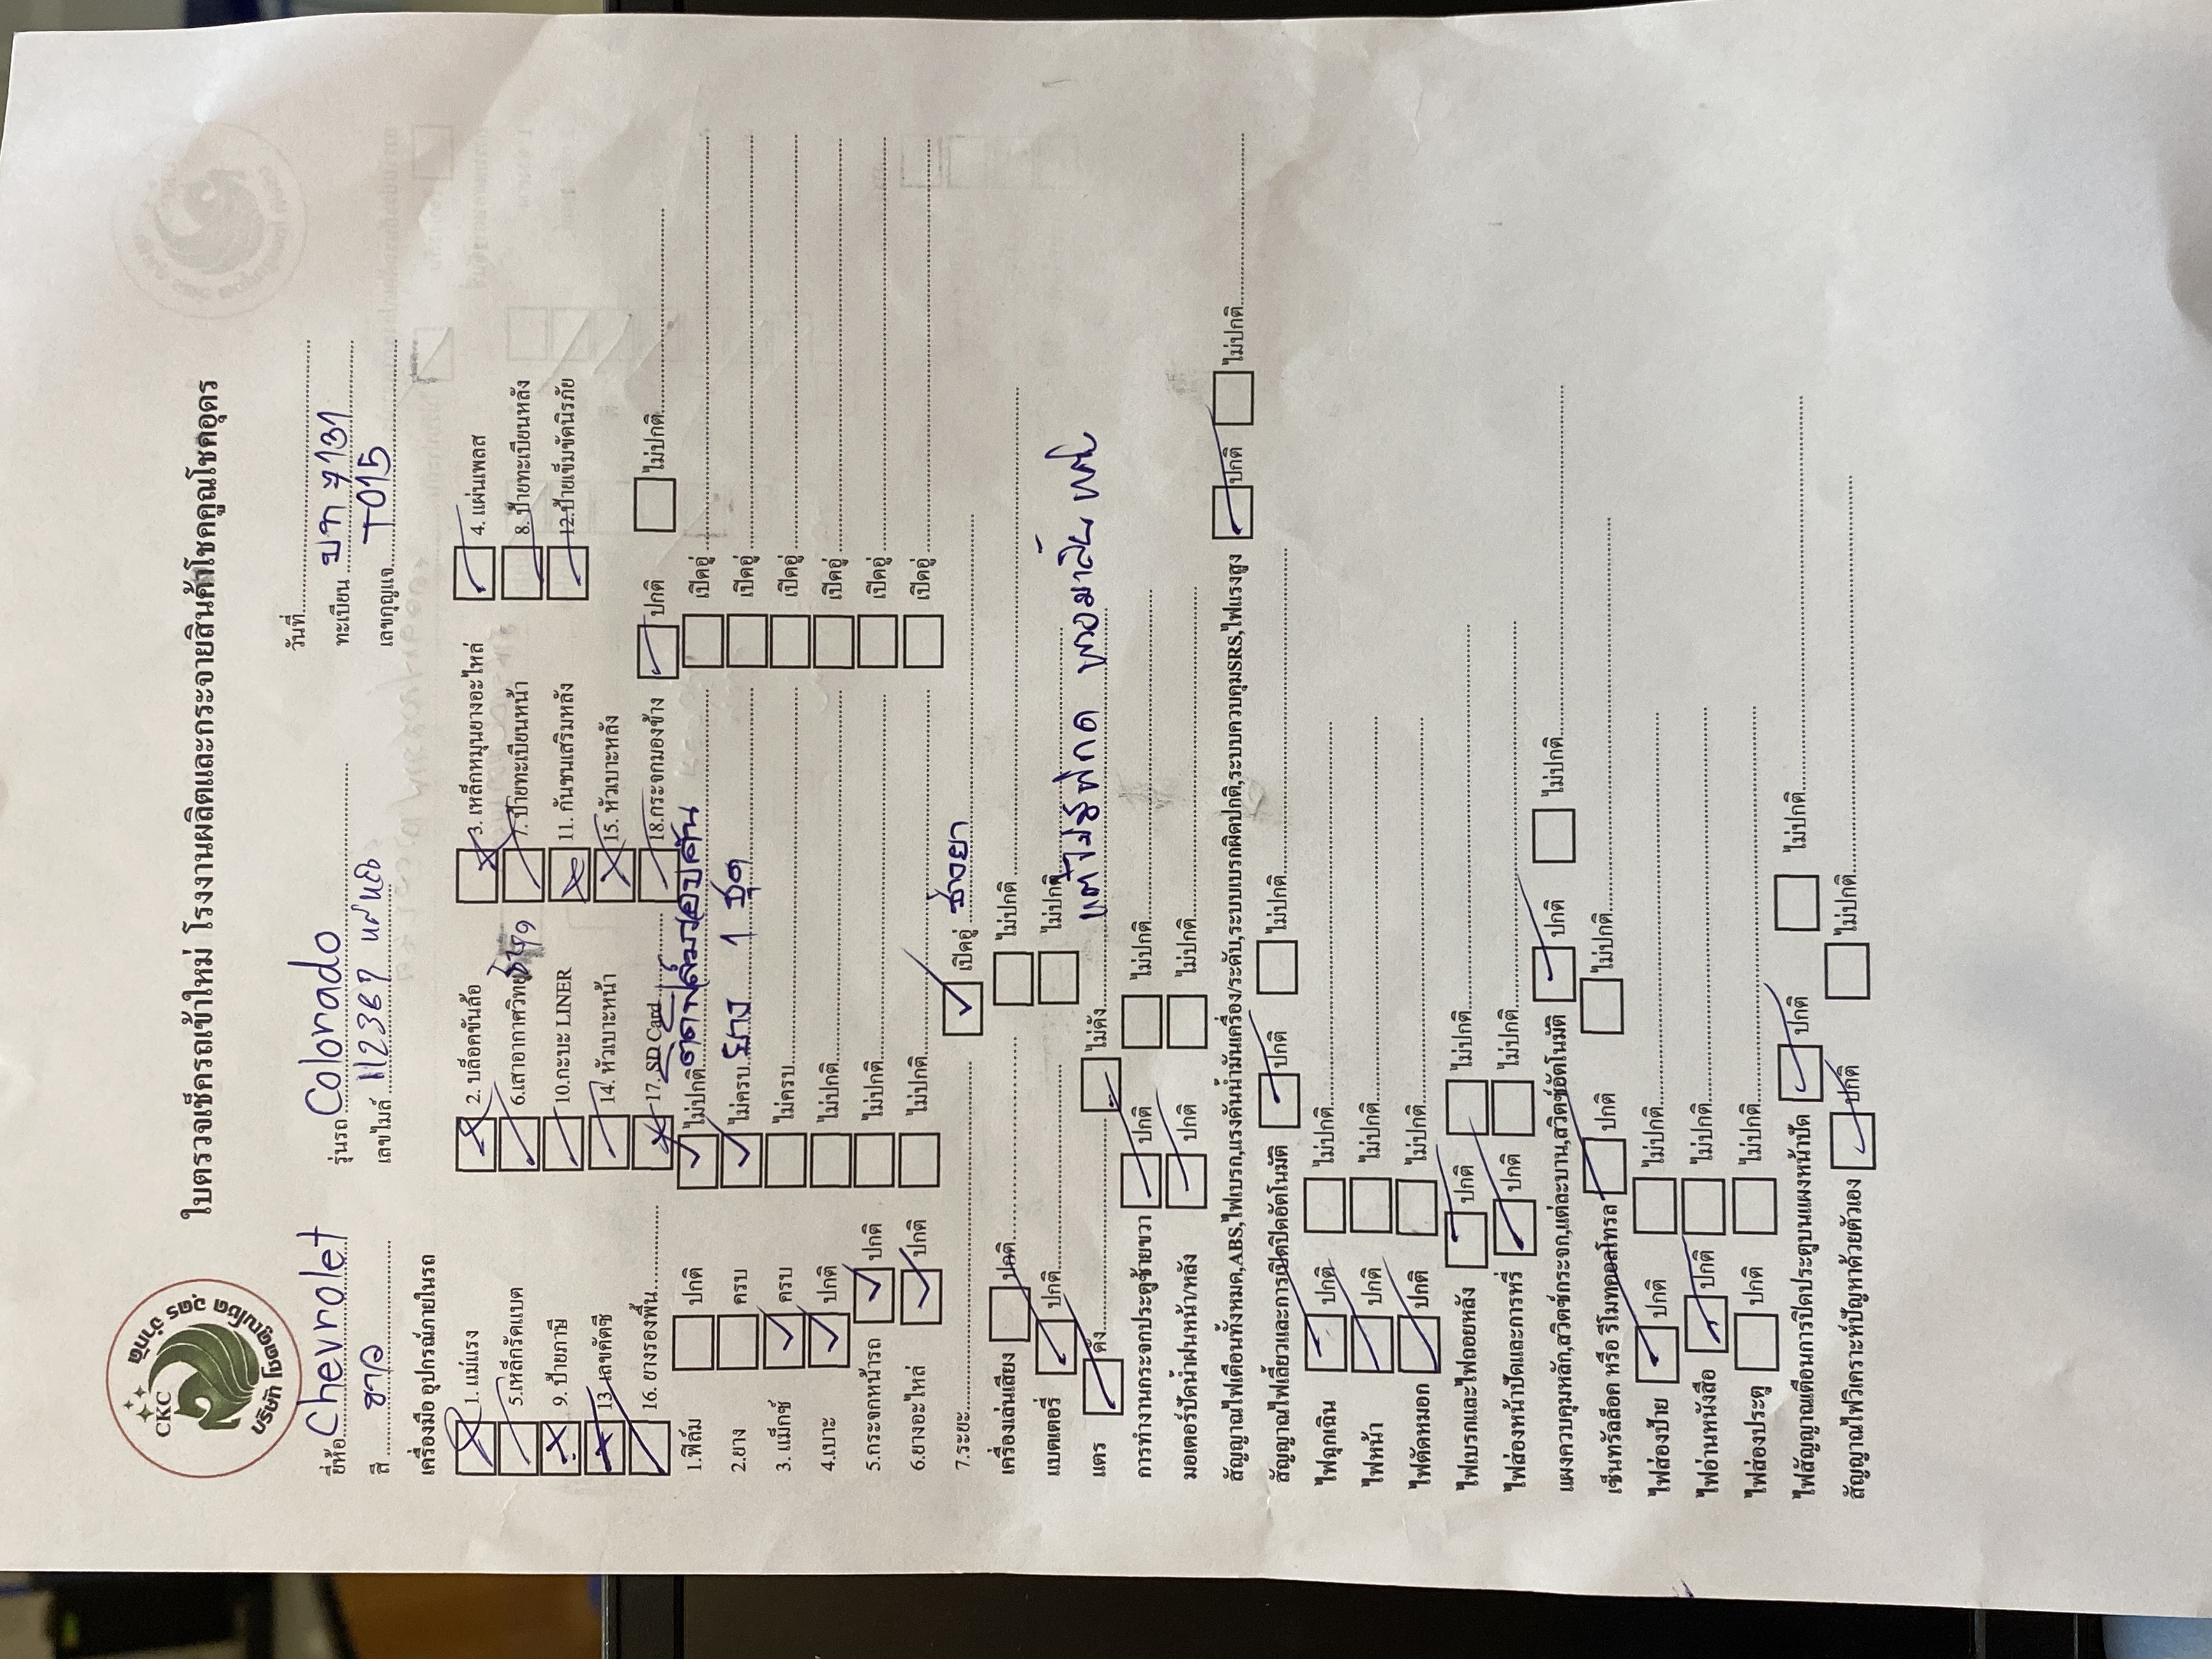 CKC
บริษัท โชคคูณโชค อุดร จำกัด
ใบตรวจเช็ครถเข้าใหม่ โรงงานผลิตและกระจายสินค้าโชคคูณโชคอุดร
วันที่
ยี่ห้อ Chevrolet รุ่นรถ Colorado ทะเบียน 7131
สี ขาว เลขไมล์ 112387 เลขกุญแจ T015
เครื่องมือ อุปกรณ์ภายในรถ
1. แม่แรง 2. บล็อคขันล้อ 3. เหล็กหมุนยางอะไหล่ 4. แผ่นเพลส
5.เหล็กรัดแบต 6.เสาอากาศวิทยุ 7. ป้ายทะเบียนหน้า 8. ป้ายทะเบียนหลัง
9. ป้ายภาษี 10.กะบะ LINER 11. กันชนเสริมหลัง 12.ป้ายเข็มขัดนิรภัย
13. เลขคัตซี 14. หัวเบาะหน้า 15. หัวเบาะหลัง
16. ยางรองพื้น 17. SD Card 18.กระจกมองข้าง ปกติ ไม่ปกติ
1.ฟิล์ม ปกติ ไม่ปกติ เปิดอู่
2.ยาง ครบ ไม่ครบ ยาง 1 ชุด เปิดอู่
3. แม็กซ์ ครบ ไม่ครบ เปิดอู่
4.เบาะ ปกติ ไม่ปกติ เปิดอู่
5.กระจกหน้ารถ ปกติ ไม่ปกติ เปิดอู่
6.ยางอะไหล่ ปกติ ไม่ปกติ เปิดอู่
7.ระยะ เปิดอู่
เครื่องเล่นเสียง ปกติ ไม่ปกติ
แบตเตอรี่ ปกติ ไม่ปกติ
แตร ดัง ไม่ดัง
การทำงานกระจกประตูซ้ายขวา ปกติ ไม่ปกติ
มอเตอร์ปัดน้ำฝนหน้า/หลัง ปกติ ไม่ปกติ
สัญญาณไฟเตือนทั้งหมด,ABS,ไฟเบรก,แรงดันน้ำมันเครื่อง/ระดับ,ระบบเบรกผิดปกติ,ระบบควบคุมSRS,ไฟแรงสูง ปกติ ไม่ปกติ
สัญญาณไฟเลี้ยวและการเปิดปิดอัตโนมัติ ปกติ ไม่ปกติ
ไฟฉุกเฉิน ปกติ ไม่ปกติ
ไฟหน้า ปกติ ไม่ปกติ
ไฟตัดหมอก ปกติ ไม่ปกติ
ไฟเบรกและไฟถอยหลัง ปกติ ไม่ปกติ
ไฟส่องหน้าปัดและการหรี่ ปกติ ไม่ปกติ
แผงควบคุมหลัก,สวิตซ์กระจก,แต่ละบาน,สวิตซ์อัตโนมัติ ปกติ ไม่ปกติ
เซ็นทรัลล็อค หรือ รีโมทคอลโทรล ปกติ ไม่ปกติ
ไฟส่องป้าย ปกติ ไม่ปกติ
ไฟอ่านหนังสือ ปกติ ไม่ปกติ
ไฟส่องประตู ปกติ ไม่ปกติ
ไฟสัญญาณเตือนการปิดประตูบนแผงหน้าปัด ปกติ ไม่ปกติ
สัญญาณไฟวิเคราะห์ปัญหาด้วยตัวเอง ปกติ ไม่ปกติ